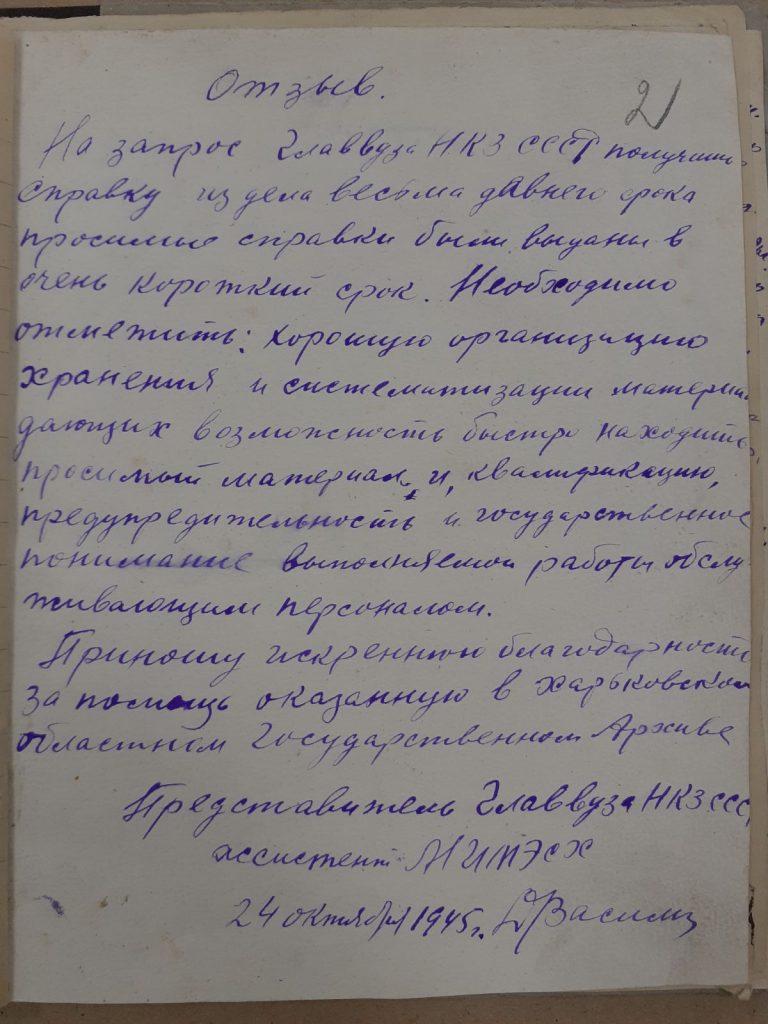 Отзыв.
2
На запрос Главвуза НКЗ СССР получить
справку из дела весьма давнего срока
просимые справки были выданы в
очень короткий срок. Необходимо
отметить: хорошую организацию
хранения и систематизации матери
дающих возможность быстро находить
просимый материал, и, квалификацию,
предупредительность и государственное
понимание выполняемой работы обслу
живающим персоналом.
Приношу искреннюю благодарность
за помощь оказанную в Харьковском
областном Государственном Архиве
Представитель Главвуза НКЗ ССС
ассистент МИМЭСХ
24 октября 1945 г.